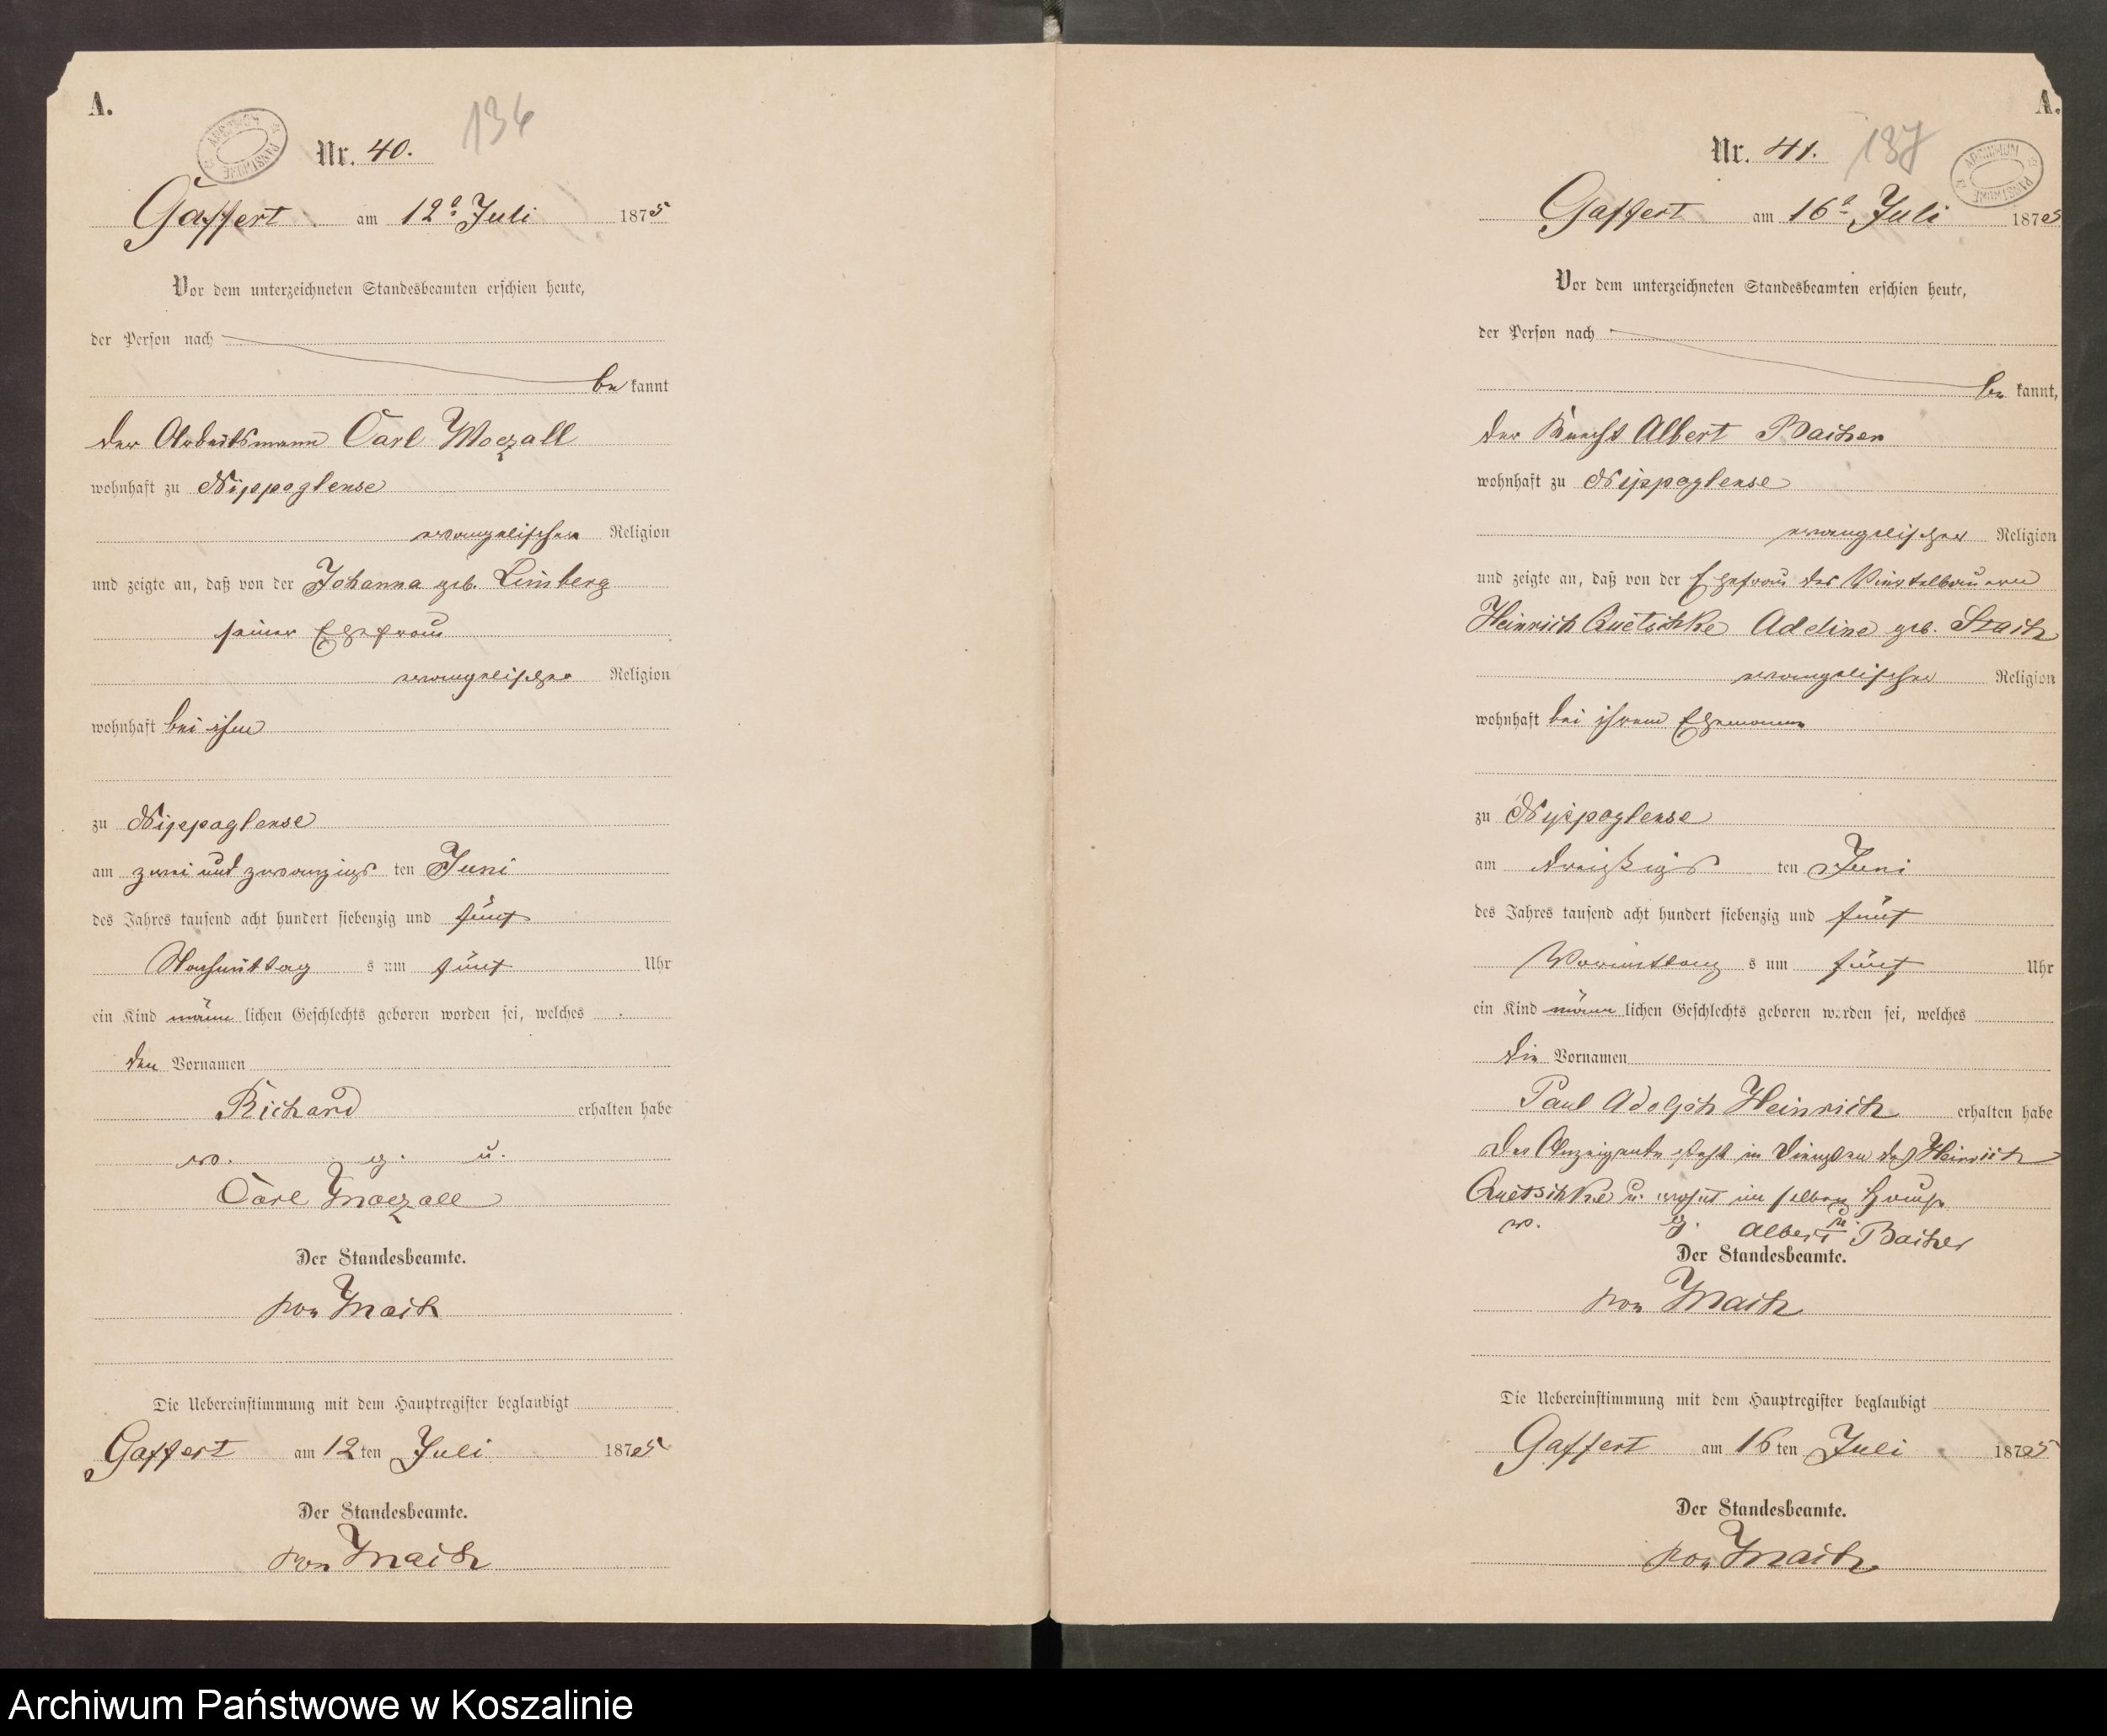 A.
ARCHIWUM PAŃSTWOWE
Nr. 40.
136
Gaffert am 12t Juli 1875
Vor dem unterzeichneten Standesbeamten erschien heute,
der Person nach
be kannt
der Arbeitsmann Carl Moczall
wohnhaft zu Nippoglense
evangelischer Religion
und zeigte an, daß von der Johanna geb. Limberg
seiner Ehefrau
evangelischer Religion
wohnhaft bei ihm
zu Nippoglense
am zwei und zwanzigs ten Juni
des Jahres tausend acht hundert siebenzig und fünf
Nachmittag s um fünf Uhr
ein Kind männ lichen Geschlechts geboren worden sei, welches
den Vornamen
Richard erhalten habe
v. g. u.
Carl Moczall
Der Standesbeamte.
von
Die Uebereinstimmung mit dem Hauptregister beglaubigt
Gaffert am 12 ten Juli 1875
Der Standesbeamte.
von
A.
ARCHIWUM PAŃSTWOWE
Nr. 41.
137
Gaffert am 16t Juli 1875
Vor dem unterzeichneten Standesbeamten erschien heute,
der Person nach
be kannt,
der Knecht Albert
wohnhaft zu Nippoglense
evangelischer Religion
und zeigte an, daß von der Ehefrau des Viertelbauern
Heinrich Quetschke Adeline geb.
evangelischer Religion
wohnhaft bei ihrem Ehemanne
zu Nippoglense
am dreißigs ten Juni
des Jahres tausend acht hundert siebenzig und fünf
Vormittag s um fünf Uhr
ein Kind männ lichen Geschlechts geboren worden sei, welches
die Vornamen
Paul Adolph Heinrich erhalten habe
Der Anzeigende steht in Diensten des Heinrich
Quetschke u. wohnt im selben Hause
v. g. u.
Albert
Der Standesbeamte.
von
Die Uebereinstimmung mit dem Hauptregister beglaubigt
Gaffert am 16 ten Juli 1875
Der Standesbeamte.
von
Archiwum Państwowe w Koszalinie